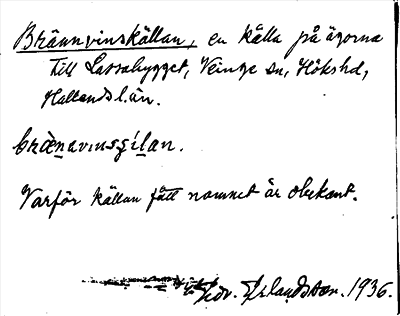 Brännvinskällan, en källa på ägorna
till Lassabygget, Veinge sn, Hökshd,
Hallandslän.
bränavinsȼilan.
Varför källan fått namnet är obekant.
1936.